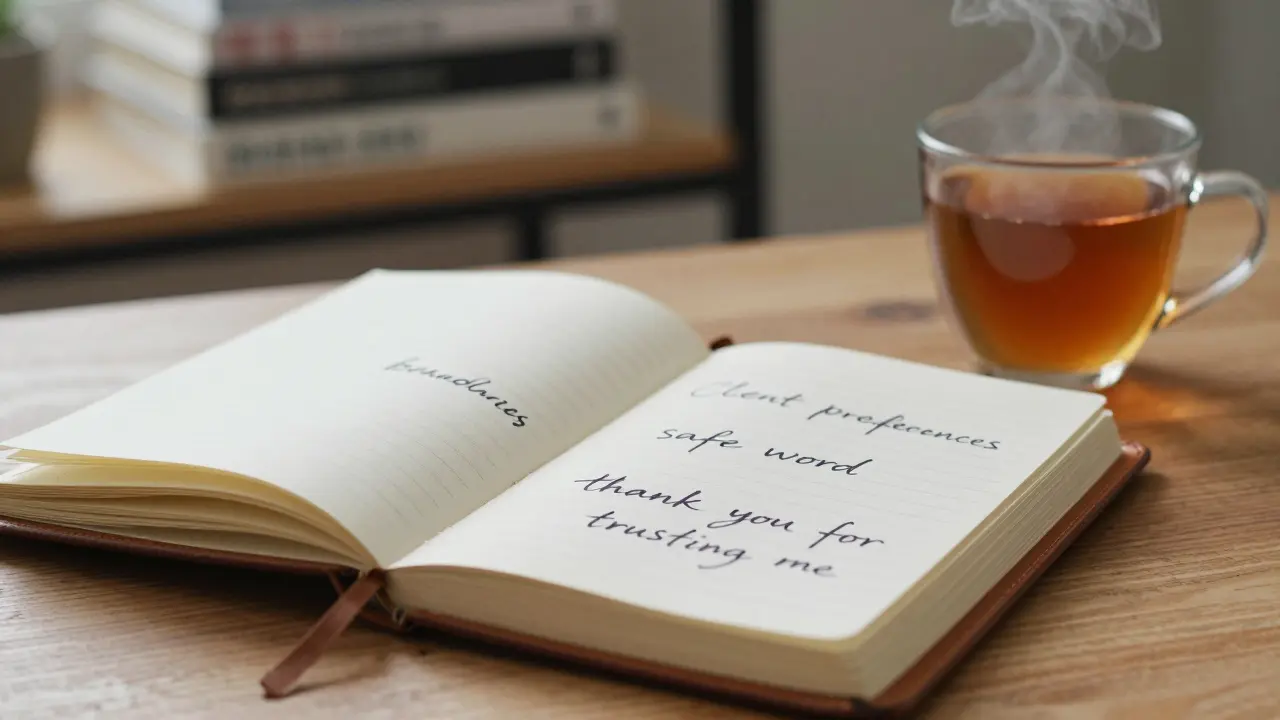 Client preferences
safe word
thank you for
trusting me